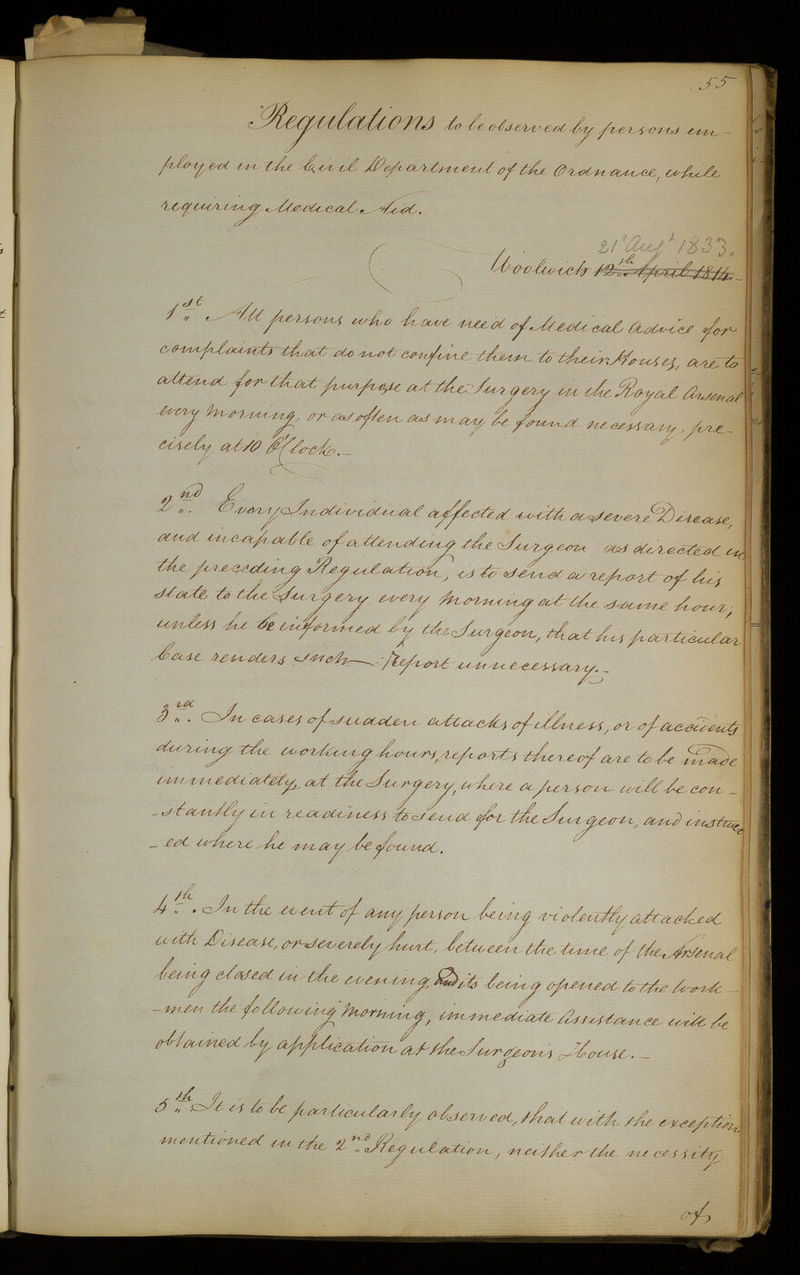 55
Regulations to be observed by persons em-
ployed in the Civil Department of the Ordnance, while
requiring Medical Aid.
21st Augt 1833.
Woolwich 12th April 1814.
1st All persons who have need of Medical Advice for
complaints that do not confine them to their Houses, are to
attend for that purpose at the Surgery in the Royal Arsenal
every Morning, or as often as may be found necessary, pre-
cisely at 10 O'Clock.-
2nd Every Individual affected with a severe Disease,
and incapable of attending the Surgeon as directed in
the preceding Regulation, is to send a report of his
state to the Surgery every Morning at the same hour;
unless he be informed by the Surgeon, that his particular
Case renders such Report unnecessary.-
3rd. In cases of sudden attacks of illness, or of accidents
during the working hours, reports thereof are to be made
immediately, at the Surgery, where a person will be con-
-stantly in readiness to send for the Surgeon, and instruct
-ed where he may be found.
4th. In the event of any person being violently attacked
with Disease, or severely hurt, between the time of the Arsenal
being closed in the evening, and its being opened to the Work-
-men the following Morning, immediate Assistance will be
obtained by application at the Surgeon's House.-
5th It is to be particularly observed, that with the exception
mentioned in the 2nd Regulation, neither the necessity
of